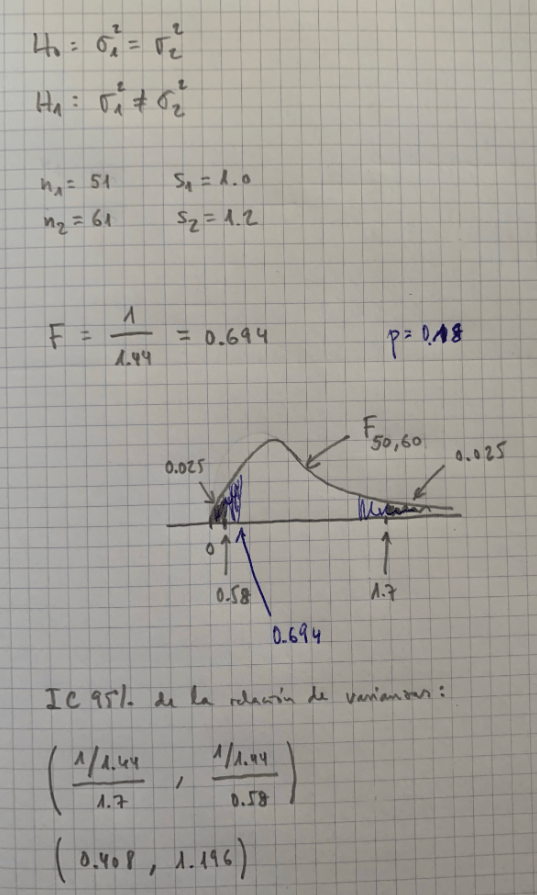 H₀: σ₁² = σ₂²
H₁: σ₁² ≠ σ₂²
n₁ = 51 s₁ = 1.0
n₂ = 61 s₂ = 1.2
F = 1/1.44 = 0.694 p = 0.18
F₅₀,₆₀
0.025 0.025
0
0.58 1.7
0.694
IC 95% de la relación de varianzas:
( (1/1.44)/1.7 , (1/1.44)/0.58 )
( 0.408 , 1.196 )